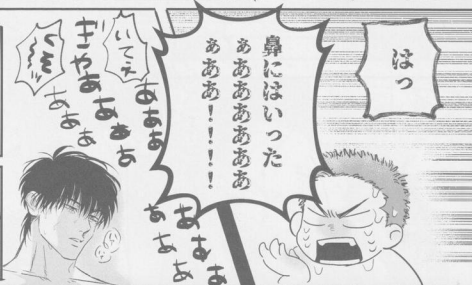 はっ
鼻にはいった
ぁああああああ
ぁああ！！！！
いてぇ
ぎゃあああぁぁ
あああぁ
あああ
ああああ
ぁああ